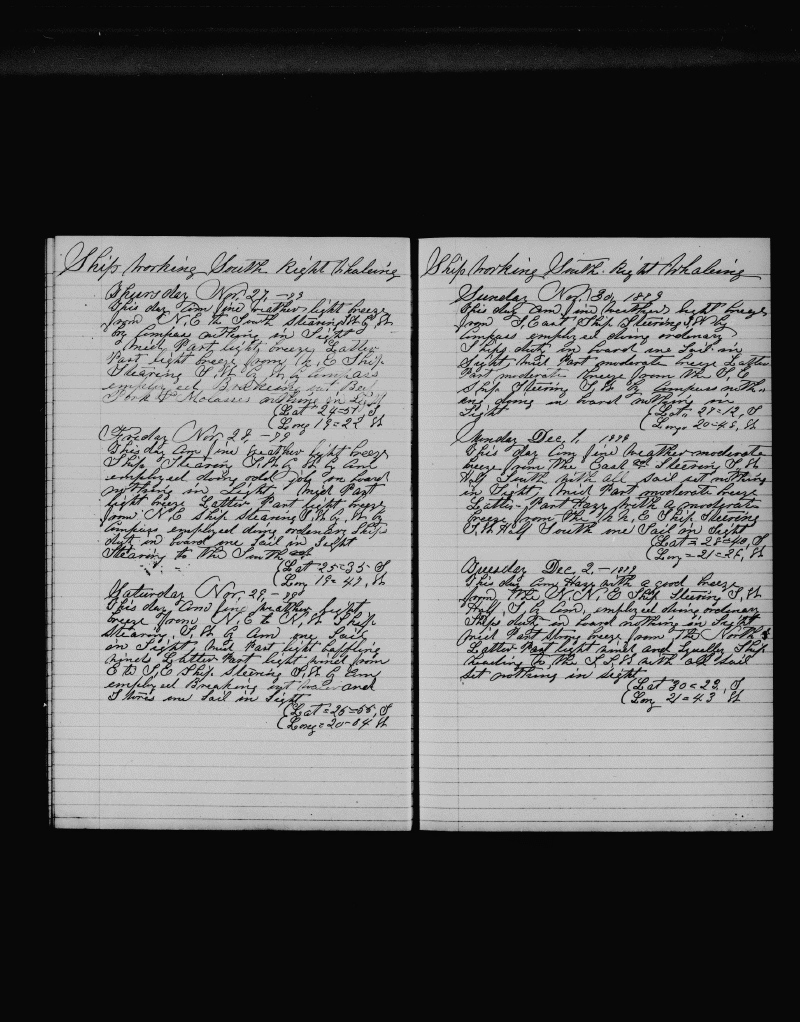 Ship working South Right Whaleing
Thursday Nov. 27, -79
This day Com fine weather light breeze
from N. E to South stearing S. W b, W
by Compass nothing in Sight
Mid Part light breeze Latter
Part light breeze from N. E Ship
Stearing S. W by W by Compass
employed Breaking out Beef
Pork & Molasses nothing in Sight
(Lat 24=51, S
(Long 19=22 W
Friday Nov. 28, -79
this day Com fine weather light breeze
Ship Stearing S. W by W by Com
employed doing odd jobs on board
nothing in Sight Mid Part
light breeze Latter Part light breeze
from N. E Ship stearing S. W by W by
Compass employed doing ordenary Ships
duty on board one Sail in Sight
Stearing to the South
(Lat 25=35= S
(Long 19= 47, W
Saturday Nov. 29, -79
This day Com fine weather light
breeze from N. E to N. W Ship
stearing S. W by Com one Sail
in Sight, Mid Part light baffling
winds Latter Part light wind from
E to S. E Ship Steering S. W by Com
employed Breaking out water and
Stores one Sail in Sight
(Lat =26=55, S
(Long =20=04 W
Ship working South. Right Whaleing
Sunday Nov. 30, 1879
This day Com fine weather light breeze
from S. East Ship Steering S. W by
Compass employed doing ordenary
Ships duty on board one Sail in
Sight, Mid Part moderate breeze Latter
Part moderate breeze from the S. E
Ship Steering S. W by Compass noth=
ing doing on board nothing in
Sight
(Lat, 27=12, S
(Long 20=45, W
Monday Dec. 1, 1879
This day Com fine weather moderate
breeze from the East Steering S. W
Half South with all sail set nothing
in Sight, Mid Part moderate breeze
Latter Part Hazy with a moderate
breeze from the N. N, E Ship Steering
S. W Half South one Sail in Sight
(Lat = 28=40, S
(Long =21=26, W
Tuesday Dec. 2, -1879
This day Com Hazy with a good breeze
from the N. N, E Ship Steering S, W
Half, S by Com, employed doing ordenary
Ships duty on board nothing in Sight
Mid Part strong breeze from the North &
Latter Part light wind and Squally Ship
heading to the S. S. W with all sail
set nothing in Sight
(Lat 30=23, S
(Long 21=43 W